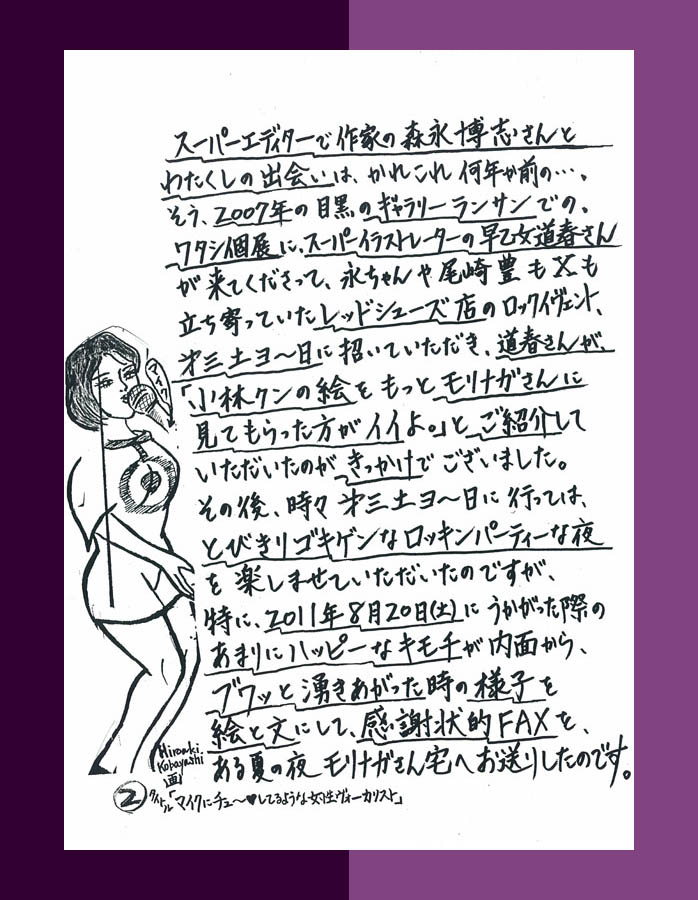 スーパーエディターで作家の森永博志さんと
わたくしの出会いは、かれこれ何年か前の…。
そう、2007年の目黒のギャラリーランサンでの、
ワタシ個展に、スーパーイラストレーターの早乙女道春さん
が来てくださって、永ちゃんや尾崎豊もXも
立ち寄っていたレッドシューズ店のロックイヴェント、
第三土ヨ〜日に招いていただき、道春さんが、
「小林クンの絵をもっとモリナガさんに
見てもらった方がイイよ。」とご紹介して
いただいたのがきっかけでございました。
その後、時々第三土ヨ〜日に行っては、
とびきりゴキゲンなロッキンパーティーな夜
を楽しませていただいたのですが、
特に、2011年8月20日(土)にうかがった際の
あまりにハッピーなキモチが内面から、
ブワッと湧きあがった時の様子を
絵と文にして、感謝状的FAXを、
ある夏の夜モリナガさん宅へお送りしたのです。
Hiroaki
Kobayashi
画
② タイトル「マイクにチュ〜♥してるような女性ヴォーカリスト」